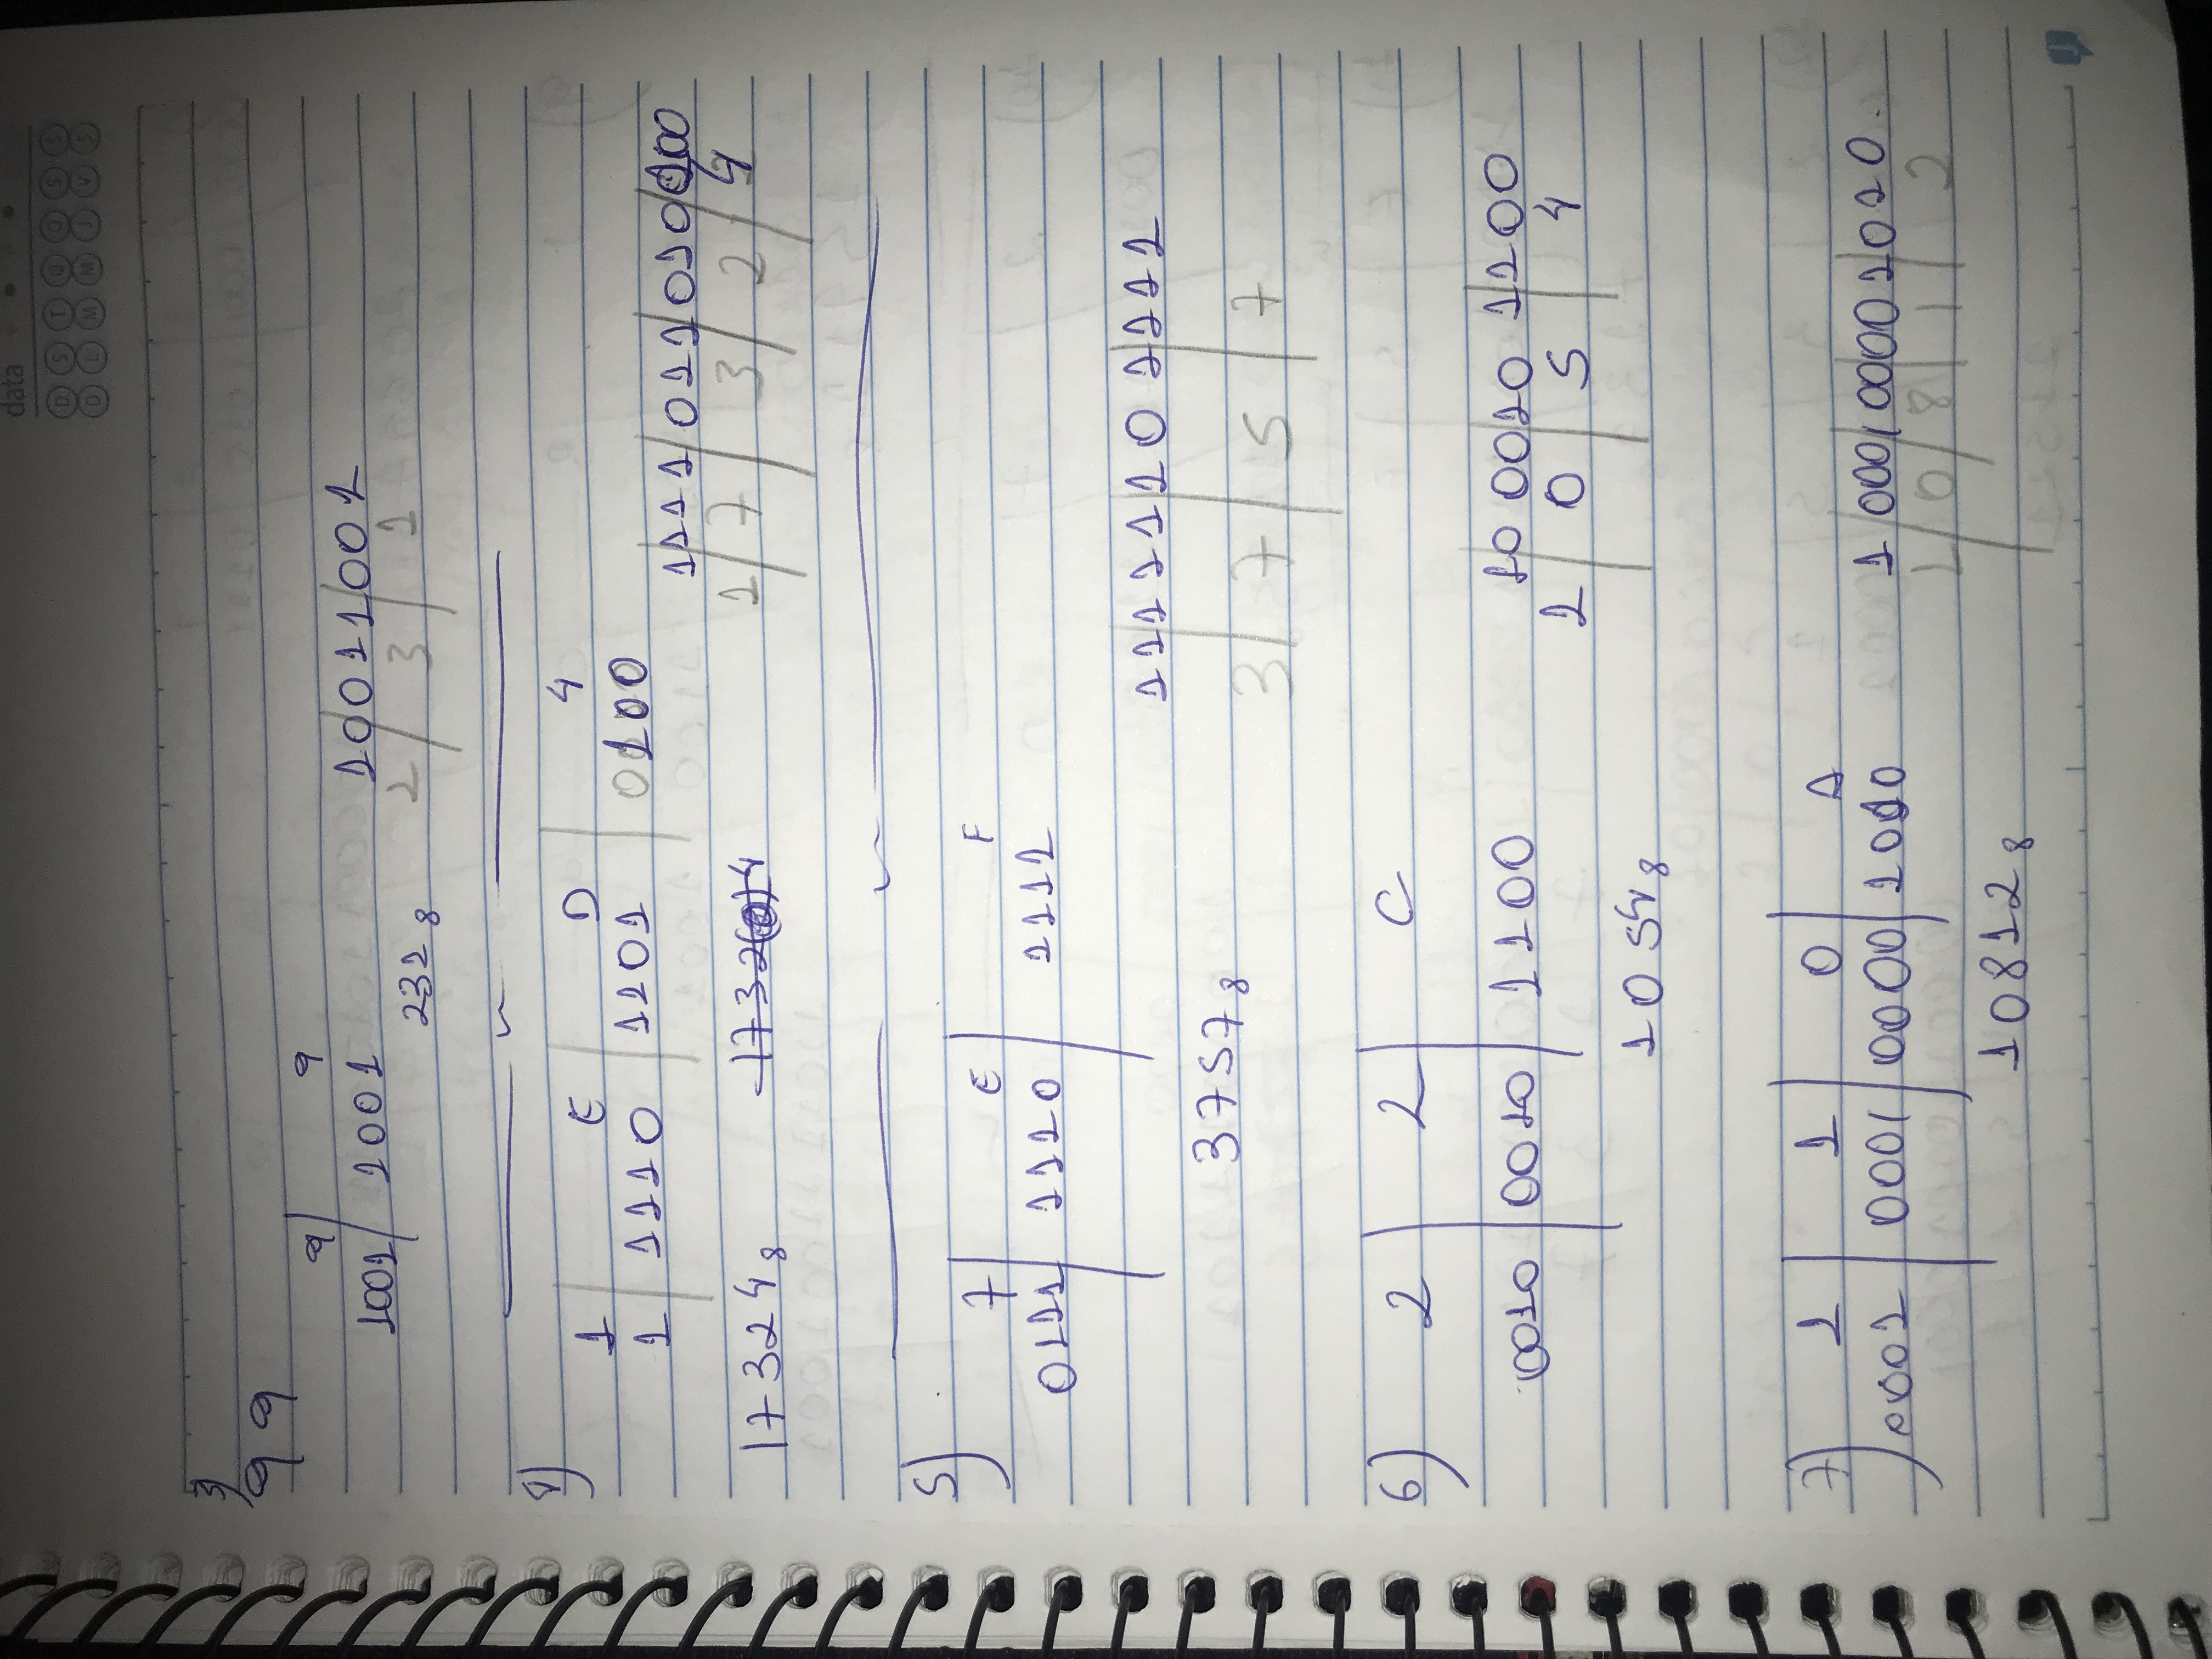 data
D S T Q Q S S
D L M M J V S
3)
99
9 / 9
1001 / 1001 10011001
232 8 2 / 3 / 1
4)
1 E D 4
1 1110 1101 0100
1111011010100
17324 8 1732(0)4 1 / 7 / 3 / 2 / 4
5)
7 E F
0111 1110 1111
11111101111
3757 8
3 / 7 / 5 / 7
6) 2 2 C
0010 0010 1100 10 0010 1100
1 0 5 4
1054 8
7) 1 1 0 A
0001 0001 0000 1010 1 000100001010.
1 / 0 / 8 / 1 / 2
10812 8